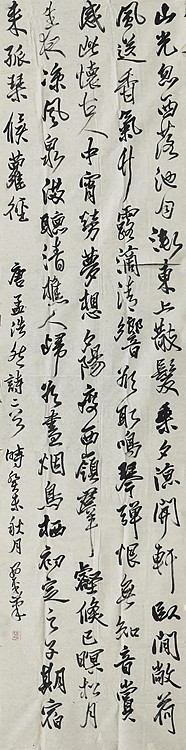 山光忽西落池月漸東上散髮乘夕涼開軒臥閒敞荷
風送香氣竹露滴清響欲取鳴琴彈恨無知音賞
感此懷故人中宵勞夢想夕陽度西嶺群壑倏已暝松月
生夜涼風泉滿聽清樵人歸欲盡烟鳥栖初定之子期宿
來孤琴候蘿徑 唐孟浩然詩二首 時癸未秋月